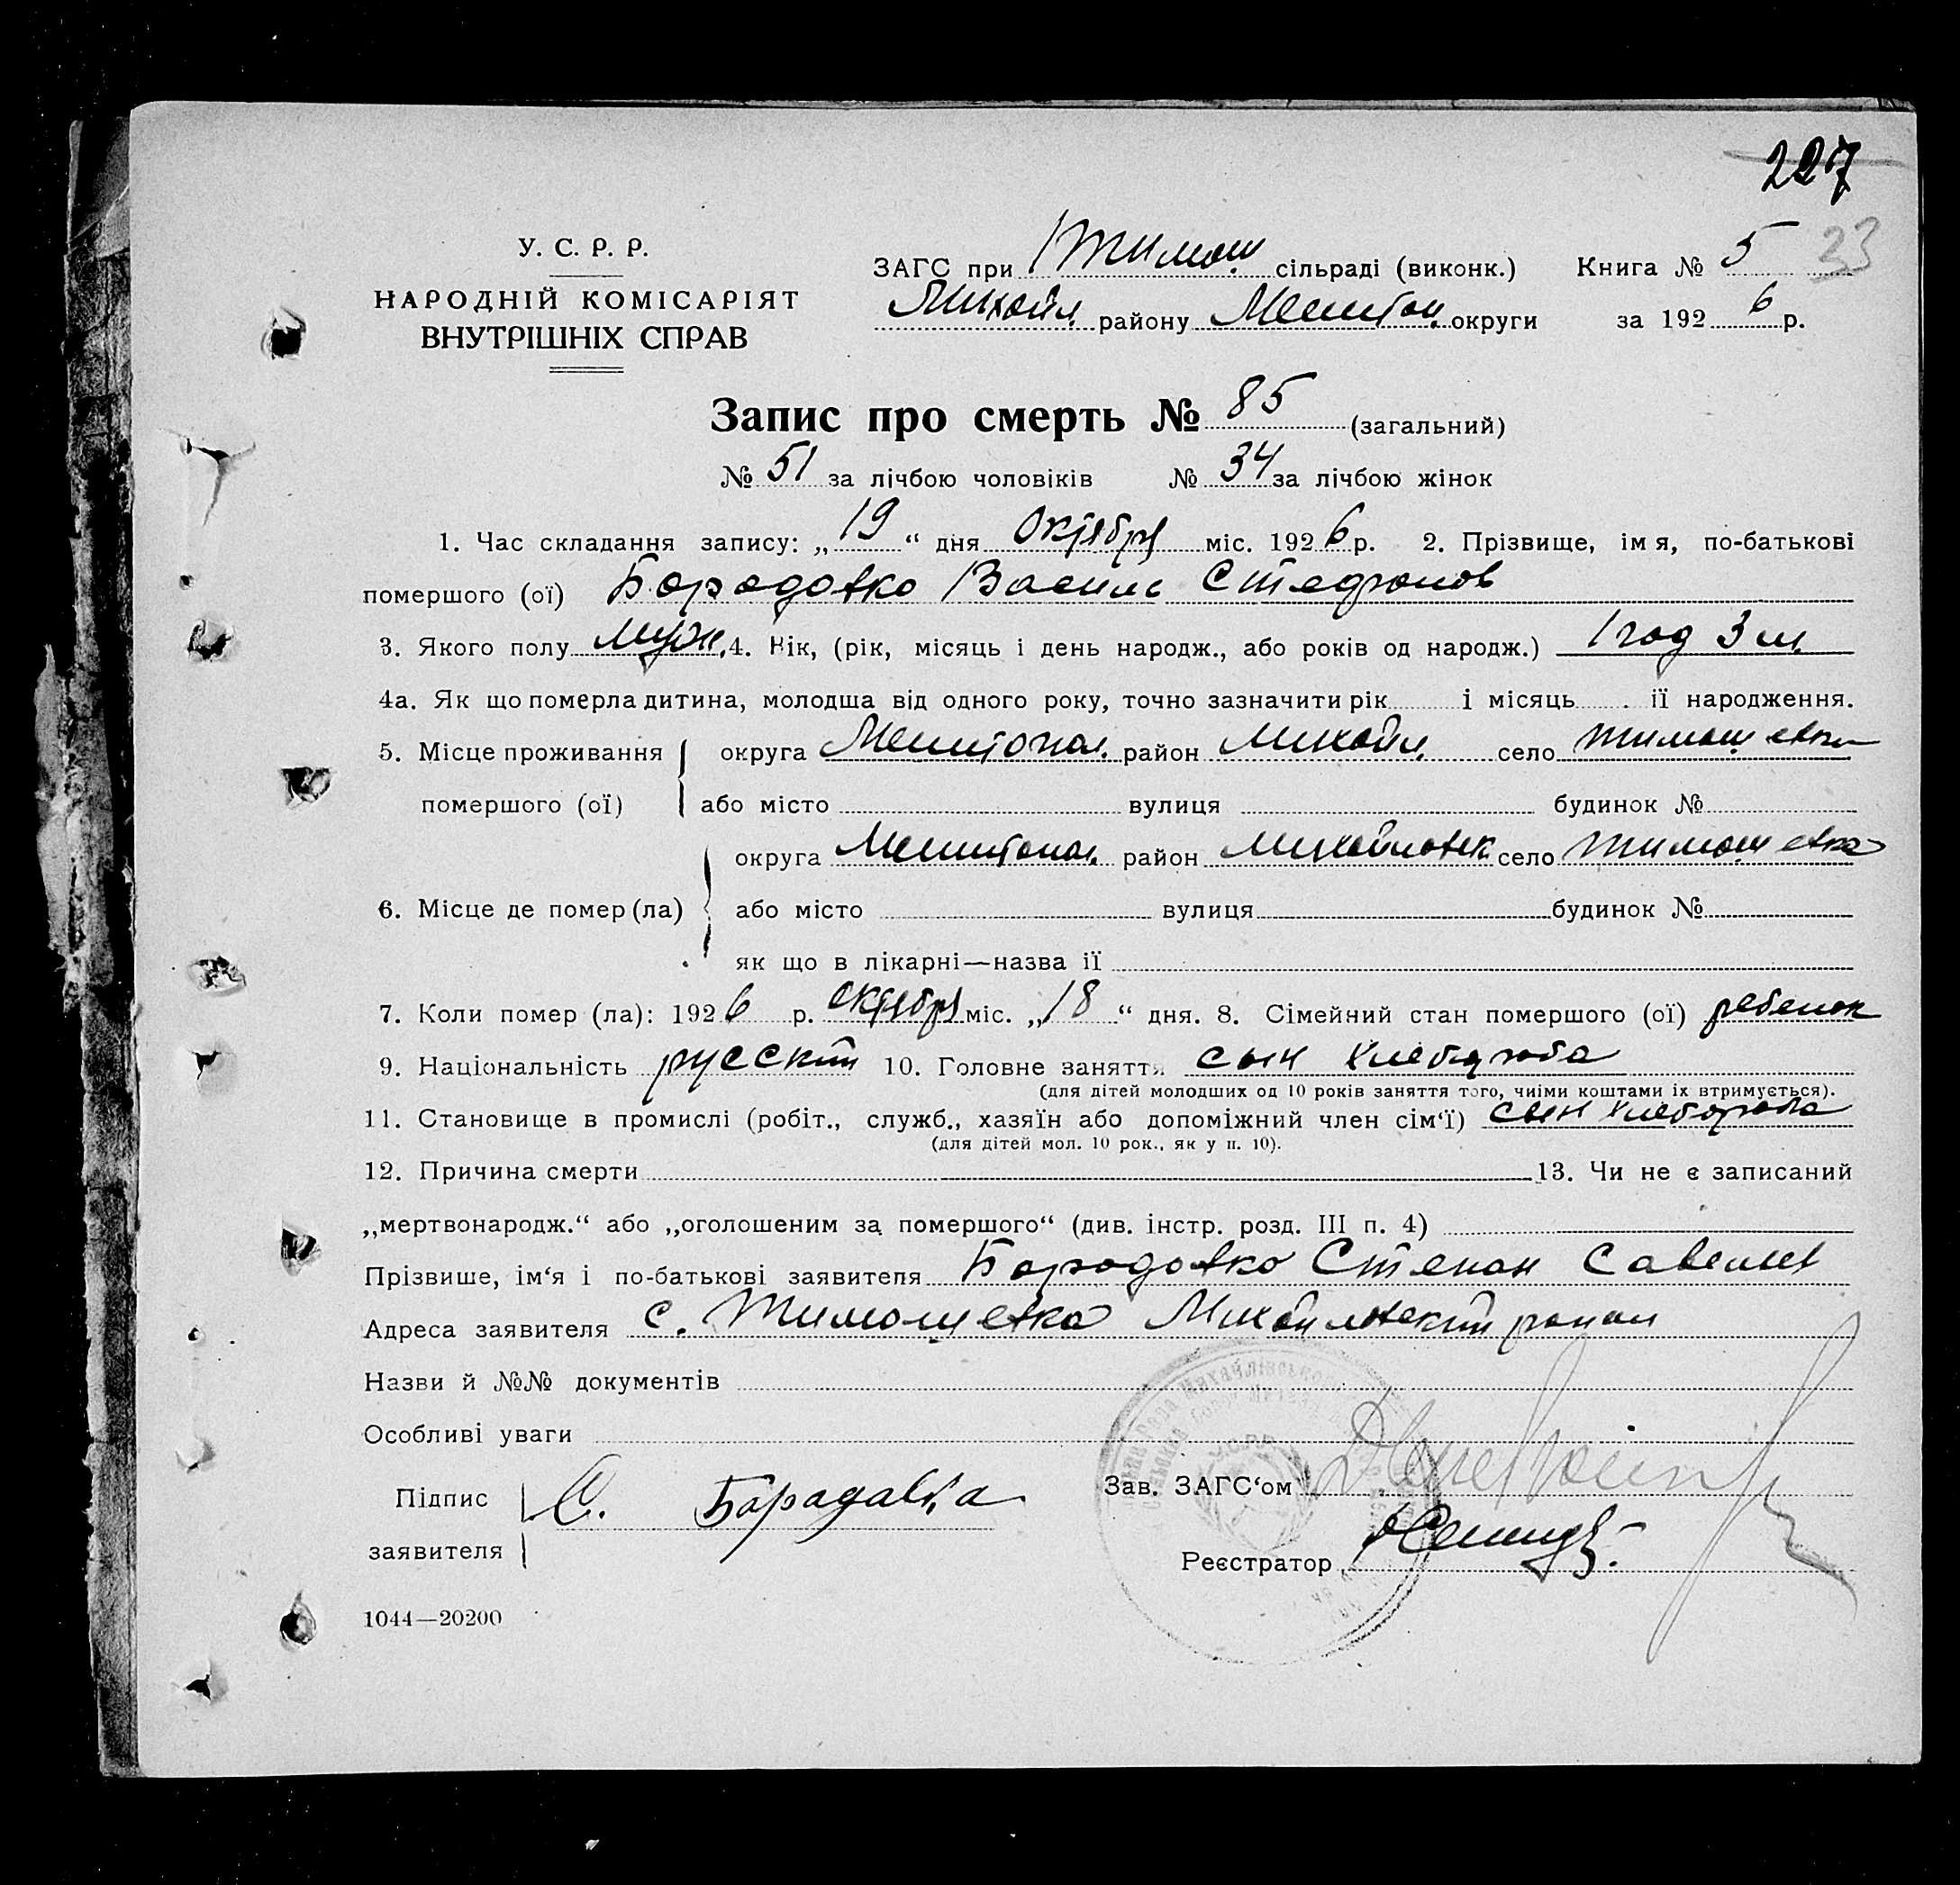 227
У. С. Р. Р.
НАРОДНІЙ КОМІСАРІЯТ
ВНУТРІШНІХ СПРАВ
ЗАГС при I Тимош. сільраді (виконк.) Книга № 5 33
Михайл. району Мелитоп. округи за 1926 р.
Запис про смерть № 85 (загальний)
№ 51 за лічбою чоловіків № 34 за лічбою жінок
1. Час складання запису: „19“ дня Октября міс. 1926 р. 2. Прізвище, імя, по-батькові
помершого (ої) Бородавко Василь Стефанов
3. Якого полу муж. 4. Вік, (рік, місяць і день народж., або років од народж.) 1 год 3 м.
4а. Як що померла дитина, молодша від одного року, точно зазначити рік і місяць її народження.
5. Місце проживання округа Мелитопол. район Михайл. село Тимошевка
помершого (ої) або місто вулиця будинок №
округа Мелитопол. район Михайловск. село Тимошевка
6. Місце де помер (ла) або місто вулиця будинок №
як що в лікарні—назва її
7. Коли помер (ла): 1926 р. октября міс. „18“ дня. 8. Сімейний стан помершого (ої) ребенок
9. Національність русский 10. Головне заняття сын хлебороба
(для дітей молодших од 10 років заняття того, чиїми коштами їх втримується).
11. Становище в промислі (робіт., служб., хазяїн або допоміжний член сім‘ї) сын хлебороба
(для дітей мол. 10 рок., як у п. 10).
12. Причина смерти 13. Чи не є записаний
„мертвонародж.“ або „оголошеним за помершого“ (див. інстр. розд. III п. 4)
Прізвише, ім‘я і по-батькові заявителя Бородавко Степан Савельев
Адреса заявителя с. Тимошевка Михайловский район
Назви й №№ документів
Особливі уваги
Підпис С. Барадавка Зав. ЗАГС‘ом
заявителя Реєстратор
1044—20200